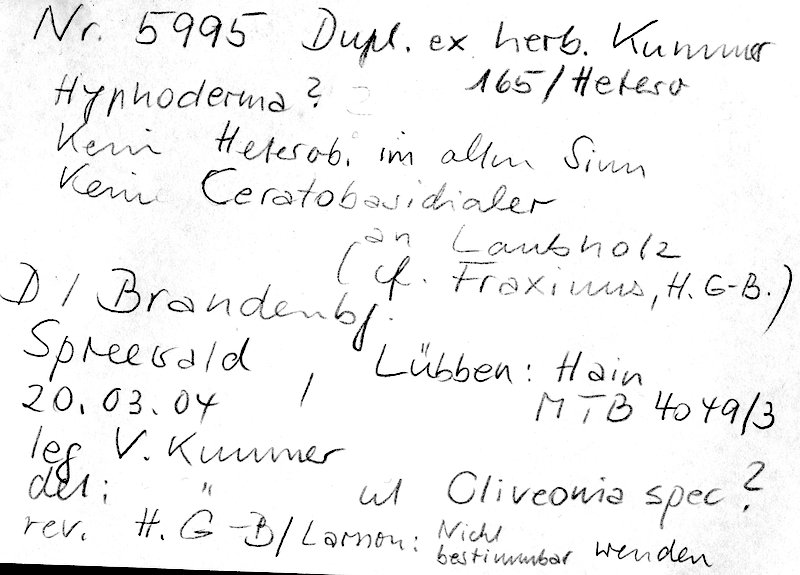 Nr. 5995 Dupl. ex herb. Kummer
165/Hetero
Hyphoderma?
Kein Heterob. im alten Sinn
Kein Ceratobasidialer
an Laubholz
(cf. Fraxinus, H. G-B.)
D / Brandenbg.
Spreewald, Lübben: Hain
20.03.04 / MTB 4049/3
leg V. Kummer
det: " ut Oliveonia spec?
rev. H. G-B/Larsson: Nicht
bestimmbar wenden